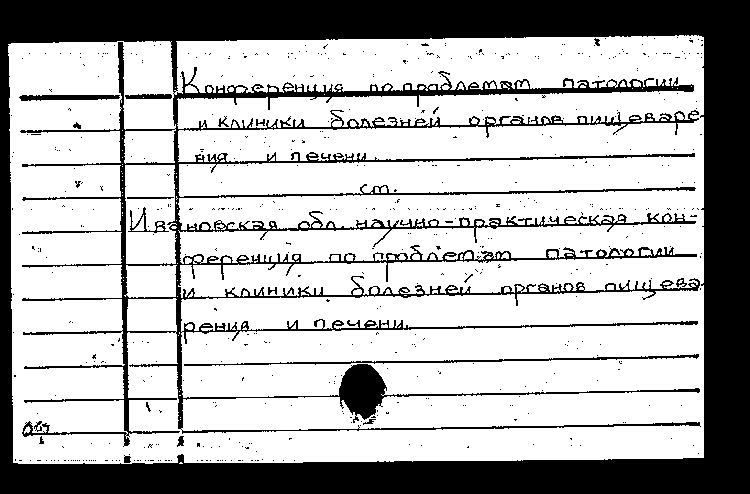 Конференция по проблемам патологии
и клиники болезней органов пищеваре-
ния и печени
см.
Ивановская обл. научно-практическая кон-
ференция по проблемам патологии
и клиники болезней органов пищева-
рения и печени.